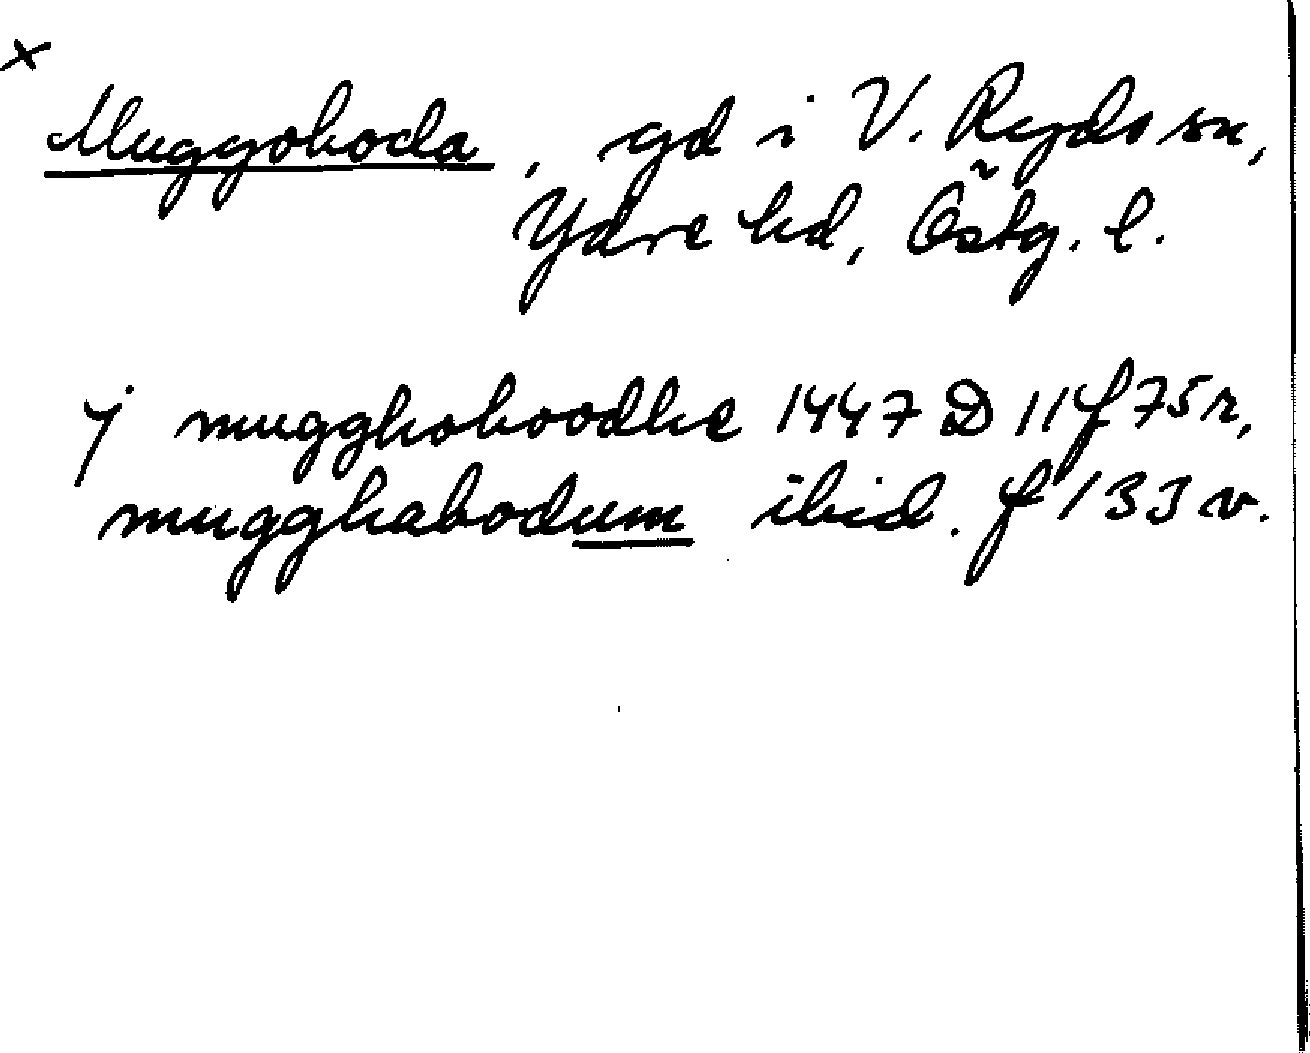 ×
Muggoboda, gd i V. Ryds sn,
Ydre hd, Östg. l.
j mugghoboodhe 1447 D 11 f 75 r,
mugghabodum ibid. f 133 v.